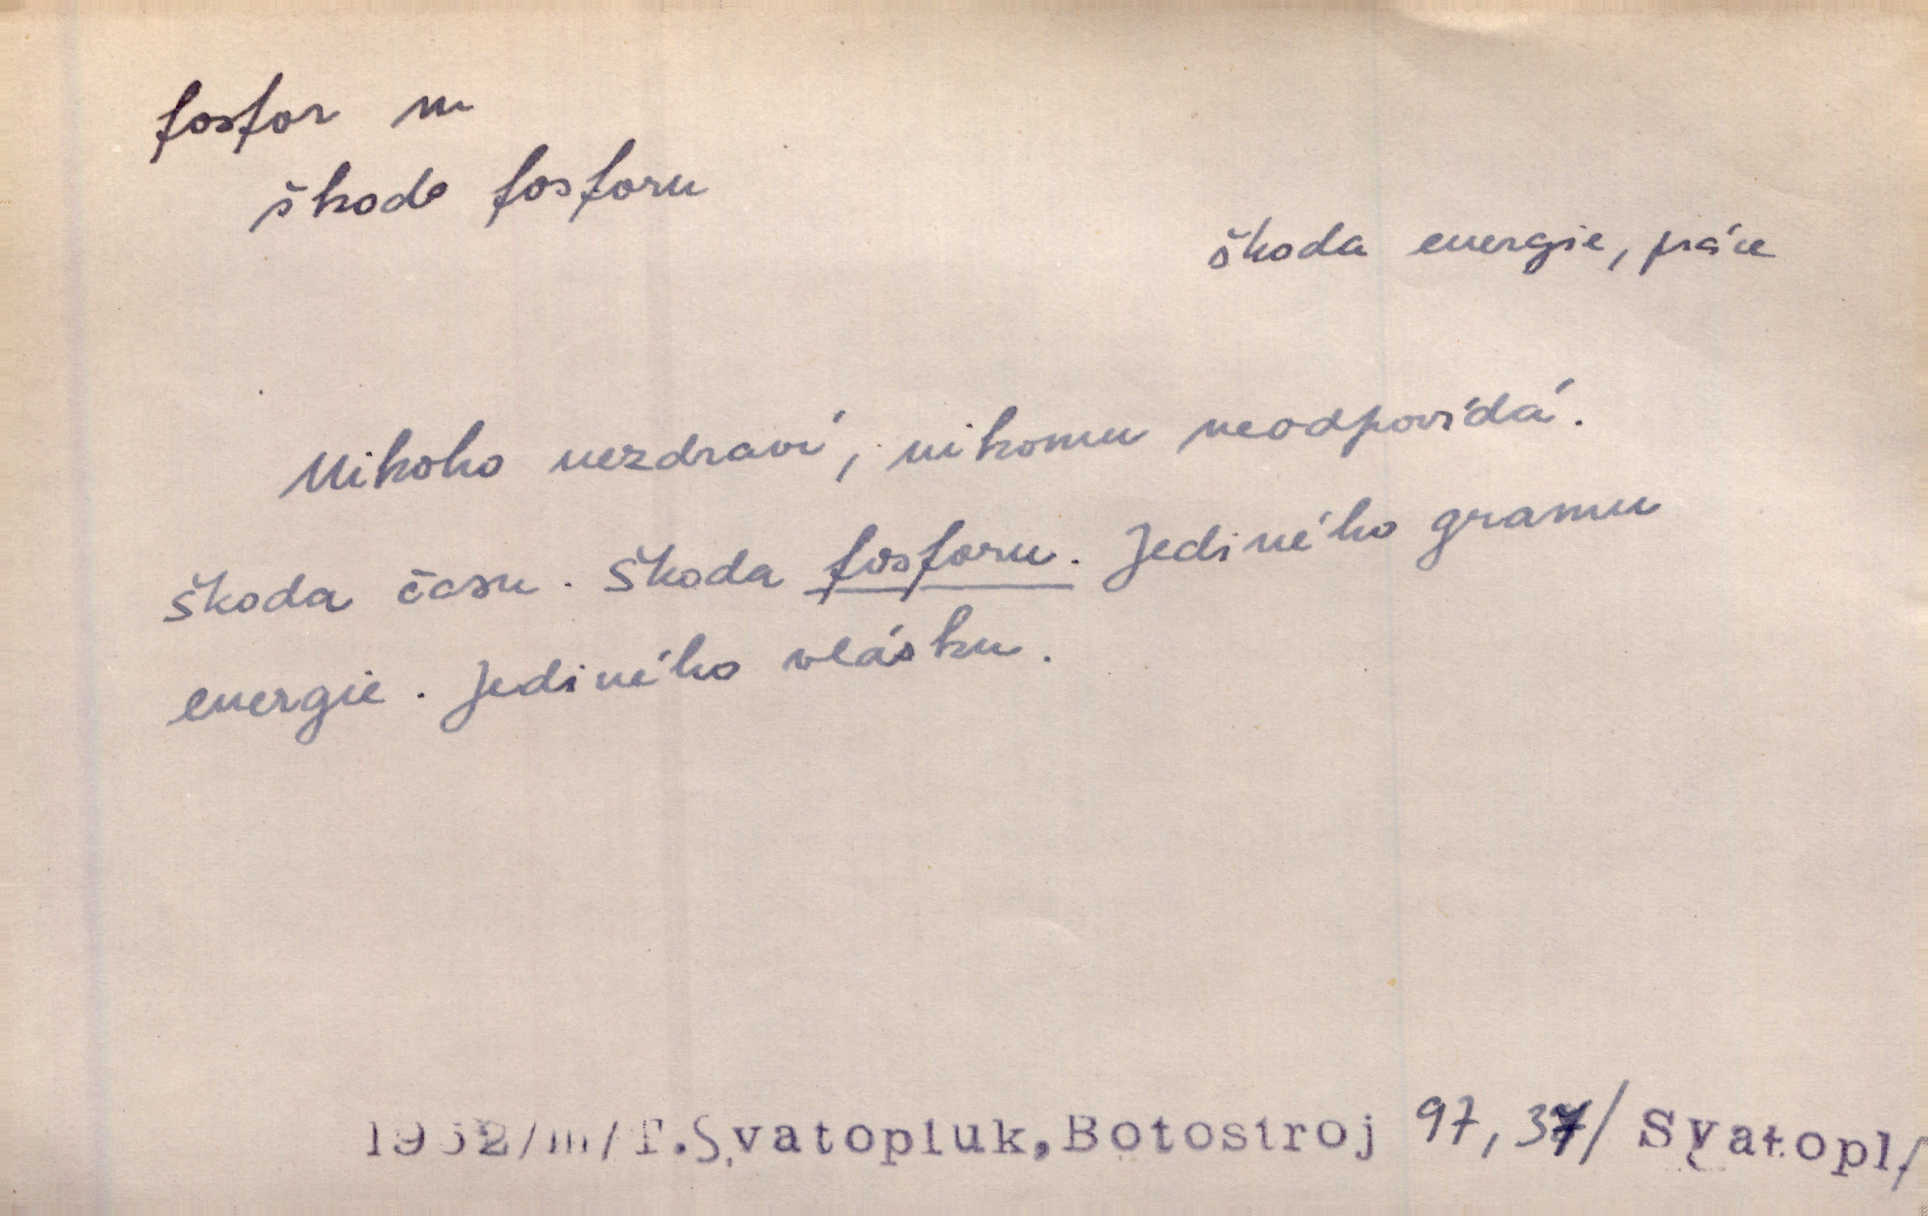 fosfor m
škoda fosforu
škoda energie, práce
Nikoho nezdraví, nikomu neodpovídá.
Škoda času. Škoda fosforu. Jediného gramu
energie. Jediného vlásku.
/m/T.Svatopluk,Botostroj 97, 37/ Svatopl/